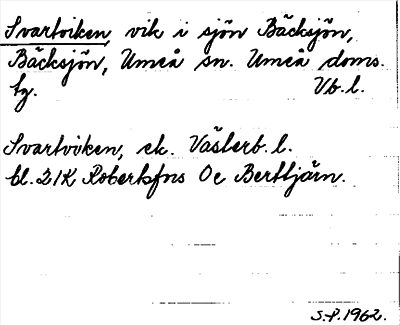 Svartviken, vik i sjön Bäcksjön,
Bäcksjön, Umeå sn. Umeå doms.
tg. Vb. l.
Svartviken, ek. Västerb. l.
bl. 21K Robertsfns Oc Berttjärn.
S.P. 1962.